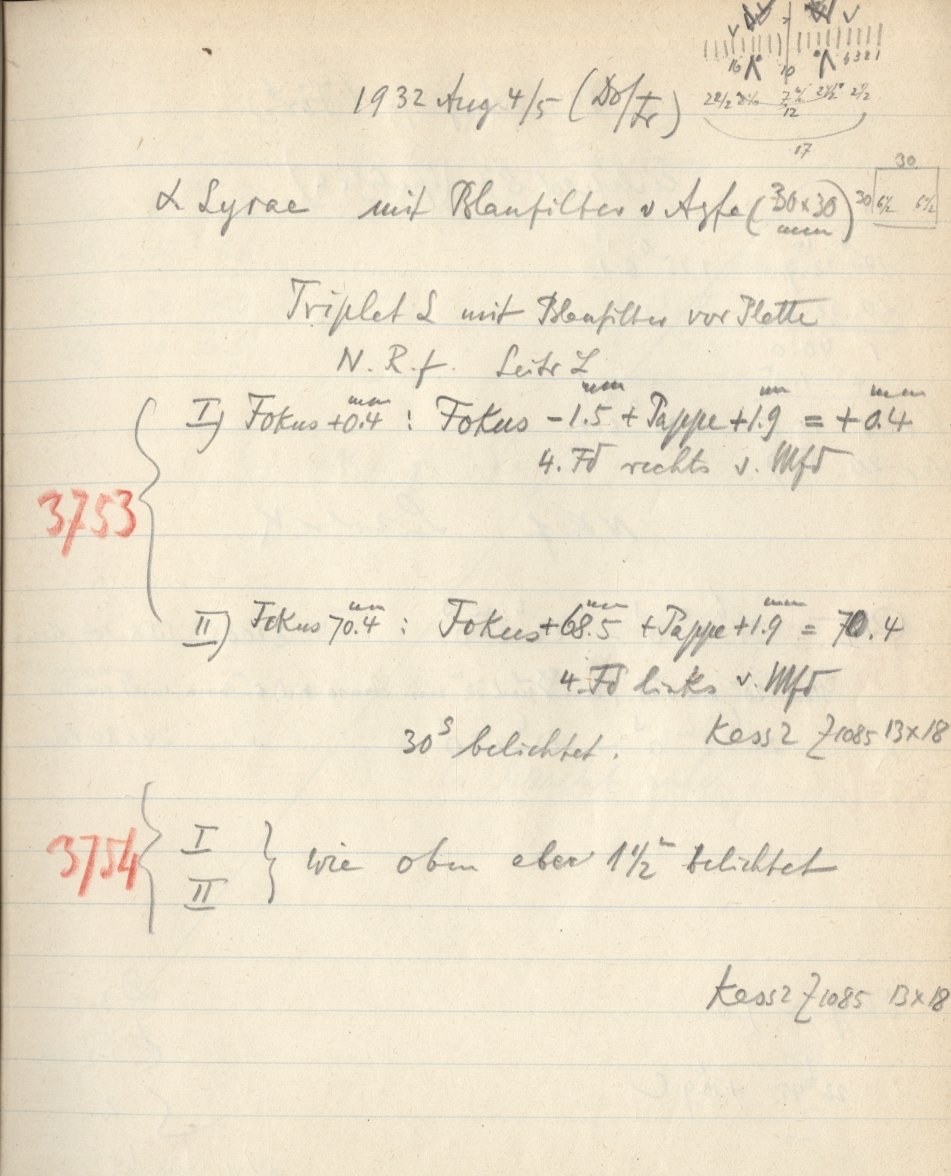 16 10 6321
1932 Aug 4/5 (Do/Fr)
17
30
α Lyrae mit Blaufilter v Agfa (30×30 mm) 30 6½ 6½
Triplet L mit Blaufilter vor Platte
N. R. f. Seite L
I) Fokus +0.4 mm : Fokus -1.5 mm + Pappe +1.9 mm = +0.4 mm
4. Fd rechts v. Mfd
3753
II) Fokus 70.4 mm : Fokus +68.5 mm + Pappe +1.9 mm = 70.4
4. Fd links v. Mfd
30s belichtet. Kass2 Z1085 13×18
3754 I
II } wie oben aber 1½m belichtet
Kass2 Z1085 13×18